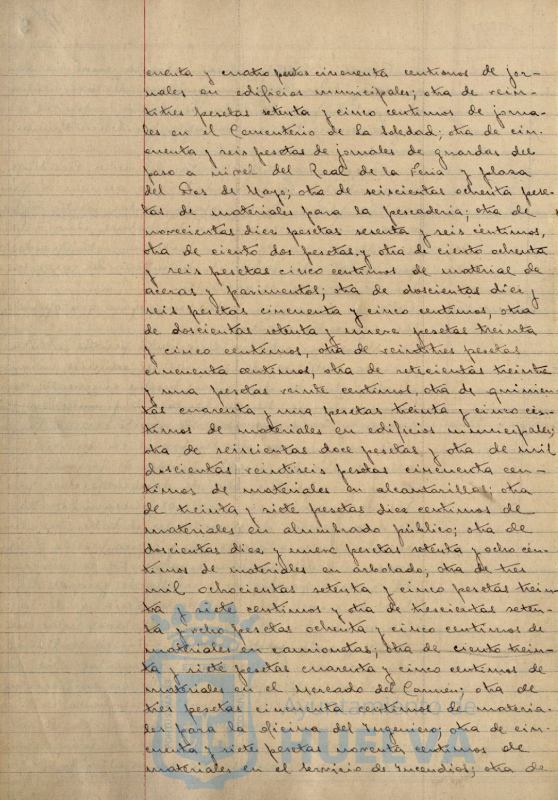 cuenta y cuatro pesetas cincuenta centimos de jor-
nales en edificios municipales; otra de vein-
titres pesetas setenta y cinco centimos de jorna-
les en el Cementerio de la Soledad; otra de cin-
cuenta y seis pesetas de jornales de guardas del
paso a nivel del Real de la Feria y plaza
del Dos de Mayo; otra de seiscientas ochenta pese-
tas de materiales para la pescaderia; otra de
novecientas diez pesetas sesenta y seis centimos,
otra de ciento dos pesetas y otra de ciento ochenta
y seis pesetas cinco centimos de material de
aceras y pavimentos; otra de doscientas diez y
seis pesetas cincuenta y cinco centimos, otra
de doscientas setenta y nueve pesetas treinta
y cinco centimos, otra de veintitres pesetas
cincuenta centimos, otra de setecientas treinta
y una pesetas veinte centimos, otra de quinien-
tas cuarenta y una pesetas treinta y cinco cen-
timos de materiales en edificios municipales;
otra de seiscientas doce pesetas y otra de mil
doscientas veintiseis pesetas cincuenta cen-
timos de materiales en alcantarillas; otra
de treinta y siete pesetas diez centimos de
materiales en alumbrado público; otra de
doscientas diez y nueve pesetas setenta y ocho cen-
timos de materiales en arbolado; otra de tres
mil ochocientas setenta y cinco pesetas trein-
ta y siete centimos y otra de trescientas seten-
ta y ocho pesetas ochenta y cinco centimos de
materiales en camionetas; otra de ciento trein-
ta y siete pesetas cuarenta y cinco centimos de
materiales en el Mercado del Carmen; otra de
tres pesetas cincuenta centimos de materia-
les para la oficina del Ingeniero; otra de cin-
cuenta y siete pesetas noventa centimos de
materiales en el Servicio de Incendios; otra de
HUELVA